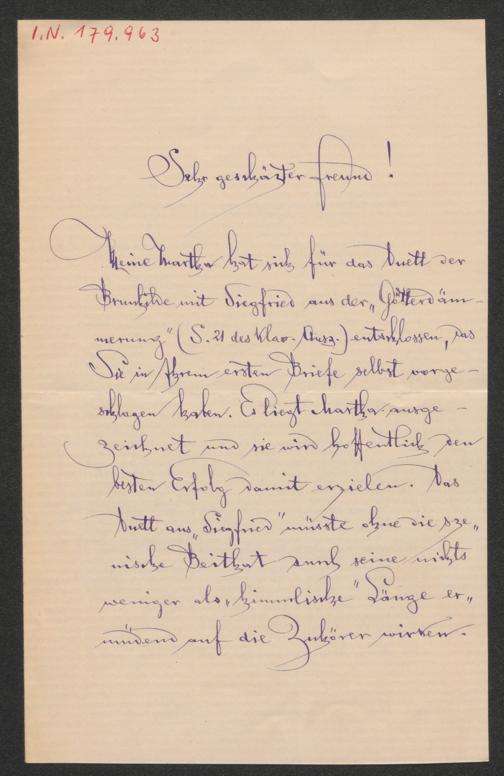 I.N. 179.963
Sehr geschätzter Freund!
Meine Martha hat sich für das Duett der
Brunhilde mit Siegfried aus der „Götterdäm-
merung" (S. 21 des Klav. Ausz.) entschlossen, das
Sie in Ihrem ersten Briefe selbst vorge-
schlagen haben. Es liegt Martha ausge-
zeichnet und sie wird hoffentlich den
besten Erfolg damit erzielen. Das
Duett aus „Siegfried" müsste ohne die sze„
nische Beithat durch seine nichts
weniger als „himmlische" Länge er„
müdend auf die Zuhörer wirken.